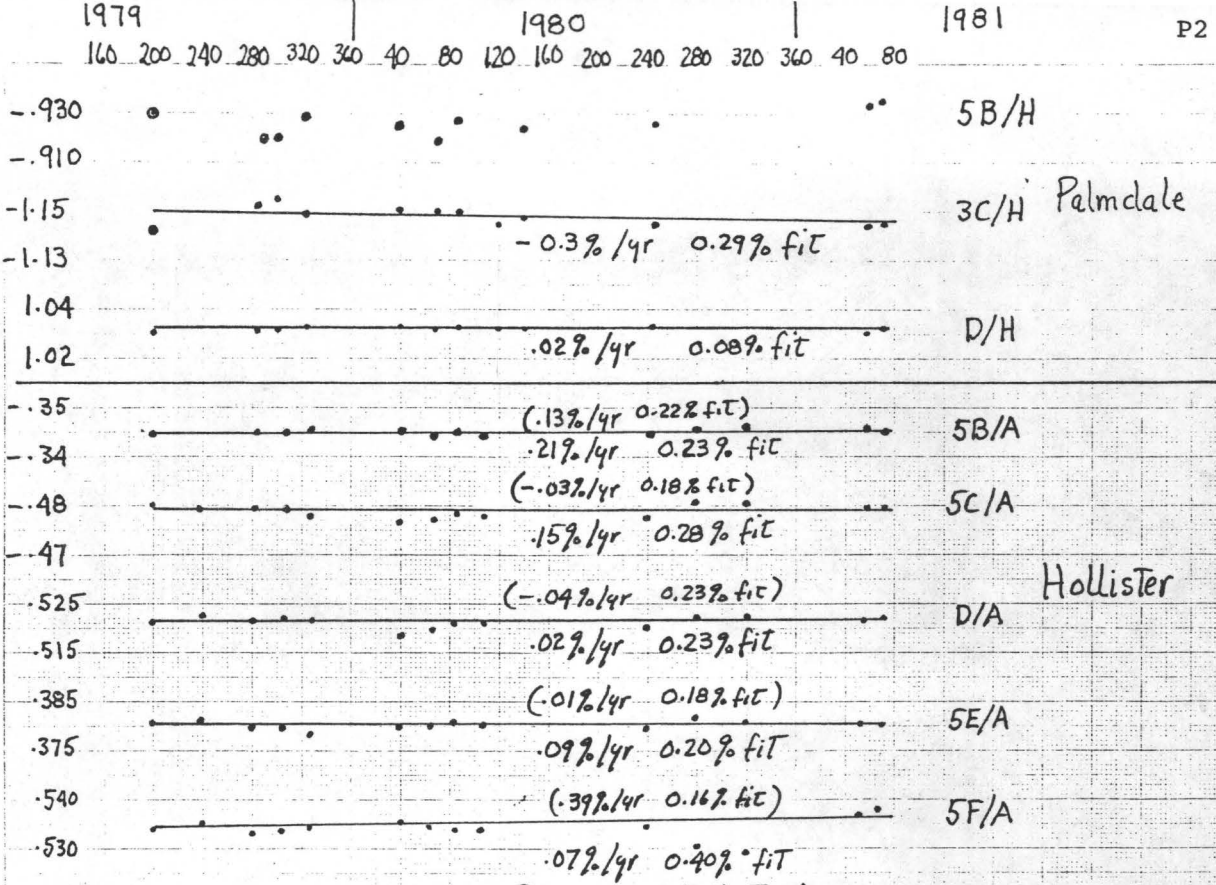 1979 1980 1981 P2
160 200 240 280 320 360 40 80 120 160 200 240 280 320 360 40 80
-.930 5B/H
-.910
-1.15 3C/H Palmdale
-0.3%/yr 0.29% fit
-1.13
1.04 D/H
.02%/yr 0.08% fit
1.02
-.35 (.13%/yr 0.22% fit) 5B/A
-.34 .21%/yr 0.23% fit
-.48 (-.03%/yr 0.18% fit) 5C/A
.15%/yr 0.28% fit
-.47
Hollister
.525 (-.04%/yr 0.23% fit) D/A
.515 .02%/yr 0.23% fit
.385 (.01%/yr 0.18% fit) 5E/A
.375 .09%/yr 0.20% fit
.540 (.39%/yr 0.16% fit) 5F/A
.530 .07%/yr 0.40% fit